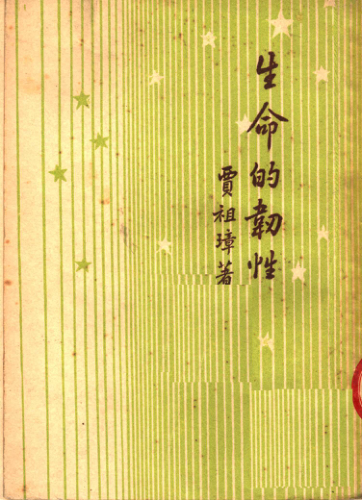 生命的韌性
賈祖璋著